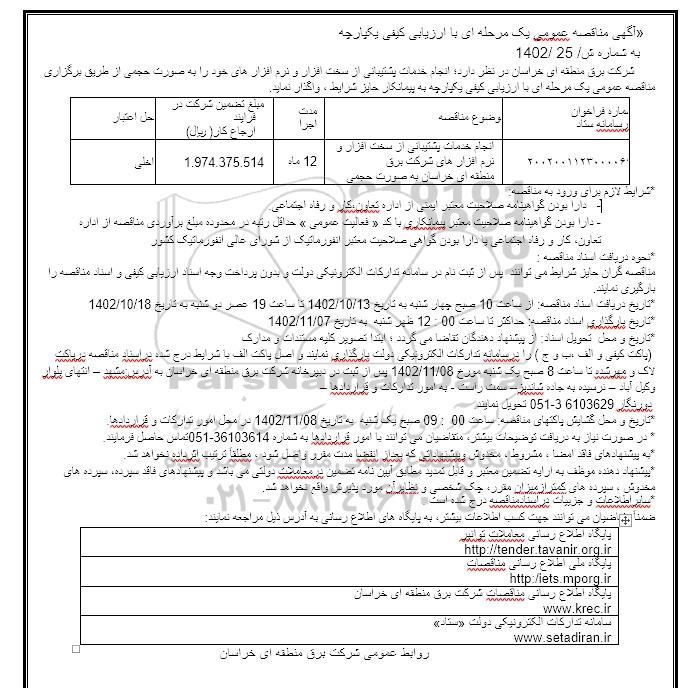 «آگهی مناقصه عمومی یک مرحله ای با ارزیابی کیفی یکپارچه
به شماره ش/ 25 /1402
شرکت برق منطقه ای خراسان در نظر دارد؛ انجام خدمات پشتیبانی از سخت افزار و نرم افزار های خود را به صورت حجمی از طریق برگزاری
مناقصه عمومی یک مرحله ای با ارزیابی کیفی یکپارچه به پیمانکار حایز شرایط ، واگذار نماید.
ماره فراخوان
رسامانه ستاد
وضوع مناقصه
مدت
اجرا
مبلغ تضمین شرکت در
فرایند
ارجاع کار( ریال)
حل اعتبار
۲۰۰۲۰۰۱۱۲۳۰۰۰۰۶
انجام خدمات پشتیبانی از سخت افزار و
نرم افزار های شرکت برق
منطقه ای خراسان به صورت حجمی
12 ماه
1.974.375.514
اخلی
*شرایط لازم برای ورود به مناقصه:
- دارا بودن گواهینامه صلاحیت معتبر ایمنی از اداره تعاون،کار و رفاه اجتماعی.
- دارا بودن گواهینامه صلاحیت معتبر پیمانکاری با کد « فعالیت عمومی » حداقل رتبه در محدوده مبلغ برآوردی مناقصه از اداره
تعاون، کار و رفاه اجتماعی یا دارا بودن گواهی صلاحیت معتبر انفورماتیک از شورای عالی انفورماتیک کشور
*نحوه دریافت اسناد مناقصه :
مناقصه گران حایز شرایط می توانند پس از ثبت نام در سامانه تدارکات الکترونیکی دولت و بدون پرداخت وجه اسناد ارزیابی کیفی و اسناد مناقصه را
بارگیری نمایند.
*تاریخ دریافت اسناد مناقصه: از ساعت 10 صبح چهار شنبه به تاریخ 1402/10/13 تا ساعت 19 عصر دو شنبه به تاریخ 1402/10/18
*تاریخ بارگذاری اسناد مناقصه: حداکثر تا ساعت 00 : 12 ظهر شنبه به تاریخ 1402/11/07
*تاریخ و محل تحویل اسناد: از پیشنهاد دهندگان تقاضا می گردد ؛ ابتدا تصویر کلیه مستندات و مدارک
(پاکت کیفی و الف ،ب و ج ) را در سامانه تدارکات الکترونیکی دولت بارگذاری نمایند و اصل پاکت الف با شرایط درج شده در اسناد مناقصه در پاکت
لاک و مهر شده تا ساعت 8 صبح یک شنبه مورخ 1402/11/08 پس از ثبت در دبیرخانه شرکت برق منطقه ای خراسان به آدرس:مشهد – انتهای بلوار
وکیل آباد – نرسیده به جاده شاندیز– سمت راست - به امور تدارکات و قراردادها –
دورنگار 6103629 3-051 تحویل نمایند.
*تاریخ و محل گشایش پاکتهای مناقصه: ساعت 00 : 09 صبح یک شنبه به تاریخ 1402/11/08 در محل امور تدارکات و قراردادها.
* در صورت نیاز به دریافت توضیحات بیشتر، متقاضیان می توانند با امور قراردادها به شماره 36103614-051تماس حاصل فرمایند.
*به پیشنهادهای فاقد امضا ، مشروط، مخدوش و پیشنهاداتی که بعد از انقضا مدت مقرر واصل شود ، مطلقاً ترتیب اثر داده نخواهد شد.
*پیشنهاد دهنده موظف به ارایه تضمین معتبر و قابل تمدید مطابق آیین نامه تضمین در معاملات دولتی می باشد و پیشنهادهای فاقد سپرده، سپرده های
مخدوش ، سپرده های کمتر از میزان مقرر، چک شخصی و نظایر آن مورد پذیرش واقع نخواهد شد.
*سایر اطلاعات و جزییات در اسناد مناقصه درج شده است
ضمناً متقاضیان می توانند جهت کسب اطلاعات بیشتر، به پایگاه های اطلاع رسانی به آدرس ذیل مراجعه نمایند:
پایگاه اطلاع رسانی معاملات توانیر
http://tender.tavanir.org.ir
پایگاه ملی اطلاع رسانی مناقصات
http:/iets.mporg.ir
پایگاه اطلاع رسانی مناقصات شرکت برق منطقه ای خراسان
www.krec.ir
سامانه تدارکات الکترونیکی دولت «ستاد»
www.setadiran.ir
روابط عمومی شرکت برق منطقه ای خراسان